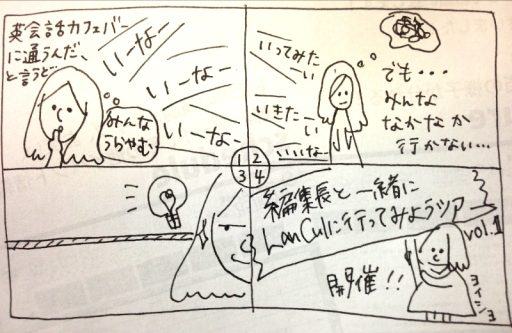 英会話カフェバー
に通うんだ、
と言うと
いーなー
いーなー
いーなー
みんな
うらやむ
いってみたーい
いきたーい
いいなー
でも・・・
みんな
なかなか
行かない…
1 2
3 4
編集長と一緒に
LanCulに行ってみようツアー
vol.1
開催!!
ヨイショ